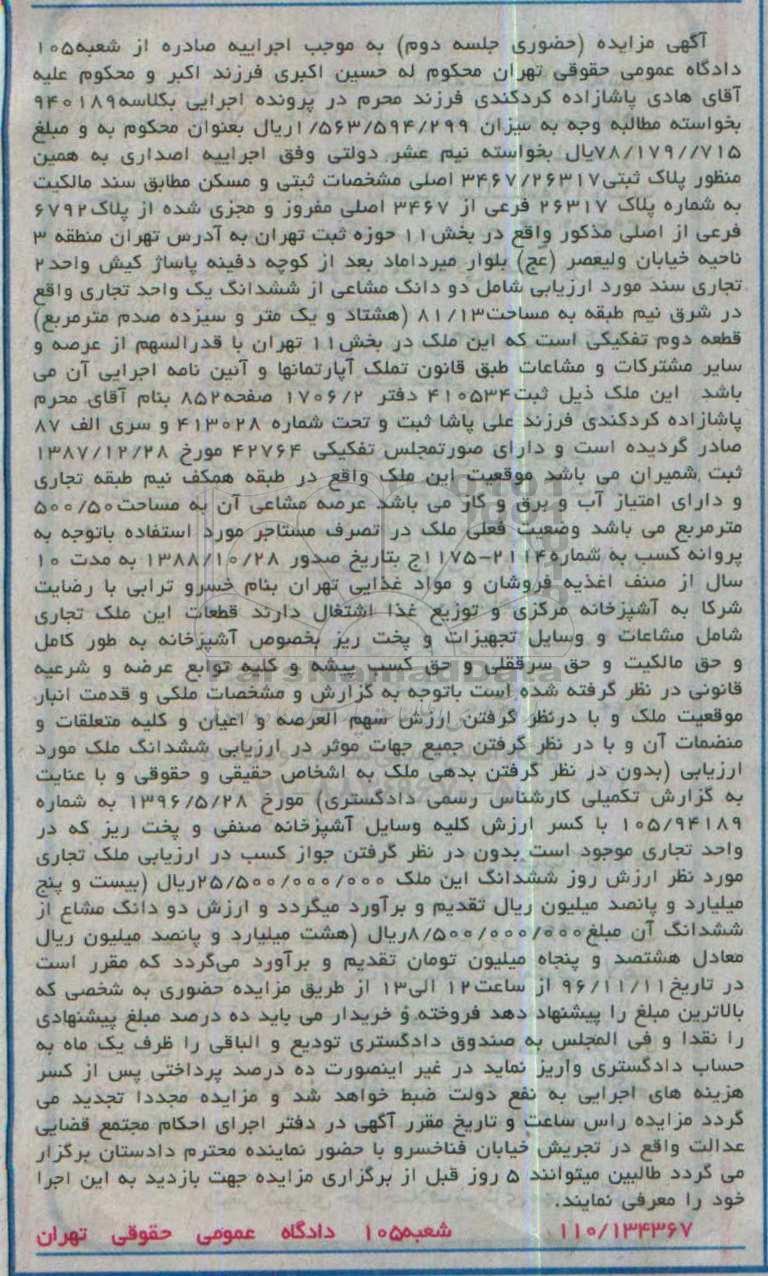 آگهی مزایده (حضوری جلسه دوم) به موجب اجراییه صادره از شعبه۱۰۵
دادگاه عمومی حقوقی تهران محکوم له حسین اکبری فرزند اکبر و محکوم علیه
آقای هادی پاشازاده کردکندی فرزند محرم در پرونده اجرایی بکلاسه۹۴۰۱۸۹
بخواسته مطالبه وجه به میزان ۱/۵۶۳/۵۹۴/۲۹۹ریال بعنوان محکوم به و مبلغ
۷۸/۱۷۹//۷۱۵یال بخواسته نیم عشر دولتی وفق اجراییه اصداری به همین
منظور پلاک ثبتی۳۴۶۷/۲۶۳۱۷ اصلی مشخصات ثبتی و مسکن مطابق سند مالکیت
به شماره پلاک ۲۶۳۱۷ فرعی از ۳۴۶۷ اصلی مفروز و مجزی شده از پلاک۶۷۹۲
فرعی از اصلی مذکور واقع در بخش۱۱ حوزه ثبت تهران به آدرس تهران منطقه ۳
ناحیه خیابان ولیعصر (عج) بلوار میرداماد بعد از کوچه دفینه پاساژ کیش واحد۲
تجاری سند مورد ارزیابی شامل دو دانک مشاعی از ششدانگ یک واحد تجاری واقع
در شرق نیم طبقه به مساحت۸۱/۱۳ (هشتاد و یک متر و سیزده صدم مترمربع)
قطعه دوم تفکیکی است که این ملک در بخش۱۱ تهران با قدرالسهم از عرصه و
سایر مشترکات و مشاعات طبق قانون تملک آپارتمانها و آئین نامه اجرایی آن می
باشد این ملک ذیل ثبت۴۱۰۵۳۴ دفتر ۱۷۰۶/۲ صفحه۸۵۲ بنام آقای محرم
پاشازاده کردکندی فرزند علی پاشا ثبت و تحت شماره ۴۱۳۰۲۸ و سری الف ۸۷
صادر گردیده است و دارای صورتمجلس تفکیکی ۴۲۷۶۴ مورخ ۱۳۸۷/۱۲/۲۸
ثبت شمیران می باشد موقعیت این ملک واقع در طبقه همکف نیم طبقه تجاری
و دارای امتیاز آب و برق و گاز می باشد عرصه مشاعی آن به مساحت۵۰۰/۵۰
مترمربع می باشد وضعیت فعلی ملک در تصرف مستاجر مورد استفاده باتوجه به
پروانه کسب به شماره۲۱۱۴-۱۱۷۵ج بتاریخ صدور ۱۳۸۸/۱۰/۲۸ به مدت ۱۰
سال از صنف اغذیه فروشان و مواد غذایی تهران بنام خسرو ترابی با رضایت
شرکا به آشپزخانه مرکزی و توزیع غذا اشتغال دارند قطعات این ملک تجاری
شامل مشاعات و وسایل تجهیزات و پخت ریز بخصوص آشپزخانه به طور کامل
و حق مالکیت و حق سرقفلی و حق کسب پیشه و کلیه توابع عرضه و شرعیه
قانونی در نظر گرفته شده است باتوجه به گزارش و مشخصات ملکی و قدمت انبار
موقعیت ملک و با درنظر گرفتن ارزش سهم العرصه و اعیان و کلیه متعلقات و
منضمات آن و با در نظر گرفتن جمیع جهات موثر در ارزیابی ششدانگ ملک مورد
ارزیابی (بدون در نظر گرفتن بدهی ملک به اشخاص حقیقی و حقوقی و با عنایت
به گزارش تکمیلی کارشناس رسمی دادگستری) مورخ ۱۳۹۶/۵/۲۸ به شماره
۱۰۵/۹۴۱۸۹ با کسر ارزش کلیه وسایل آشپزخانه صنفی و پخت ریز که در
واحد تجاری موجود است بدون در نظر گرفتن جواز کسب در ارزیابی ملک تجاری
مورد نظر ارزش روز ششدانگ این ملک ۲۵/۵۰۰/۰۰۰/۰۰۰ریال (بیست و پنج
میلیارد و پانصد میلیون ریال تقدیم و برآورد میگردد و ارزش دو دانگ مشاع از
ششدانگ آن مبلغ۸/۵۰۰/۰۰۰/۰۰۰ریال (هشت میلیارد و پانصد میلیون ریال
معادل هشتصد و پنجاه میلیون تومان تقدیم و برآورد می‌گردد که مقرر است
در تاریخ۹۶/۱۱/۱۱ از ساعت۱۲ الی۱۳ از طریق مزایده حضوری به شخصی که
بالاترین مبلغ را پیشنهاد دهد فروخته و خریدار می باید ده درصد مبلغ پیشنهادی
را نقدا و فی المجلس به صندوق دادگستری تودیع و الباقی را ظرف یک ماه به
حساب دادگستری واریز نماید در غیر اینصورت ده درصد پرداختی پس از کسر
هزینه های اجرایی به نفع دولت ضبط خواهد شد و مزایده مجددا تجدید می
گردد مزایده راس ساعت و تاریخ مقرر آگهی در دفتر اجرای احکام مجتمع قضایی
عدالت واقع در تجریش خیابان فناخسرو با حضور نماینده محترم دادستان برگزار
می گردد طالبین میتوانند ۵ روز قبل از برگزاری مزایده جهت بازدید به این اجرا
خود را معرفی نمایند.
۱۱۰/۱۳۴۳۶۷ شعبه۱۰۵ دادگاه عمومی حقوقی تهران
ParsNamadData